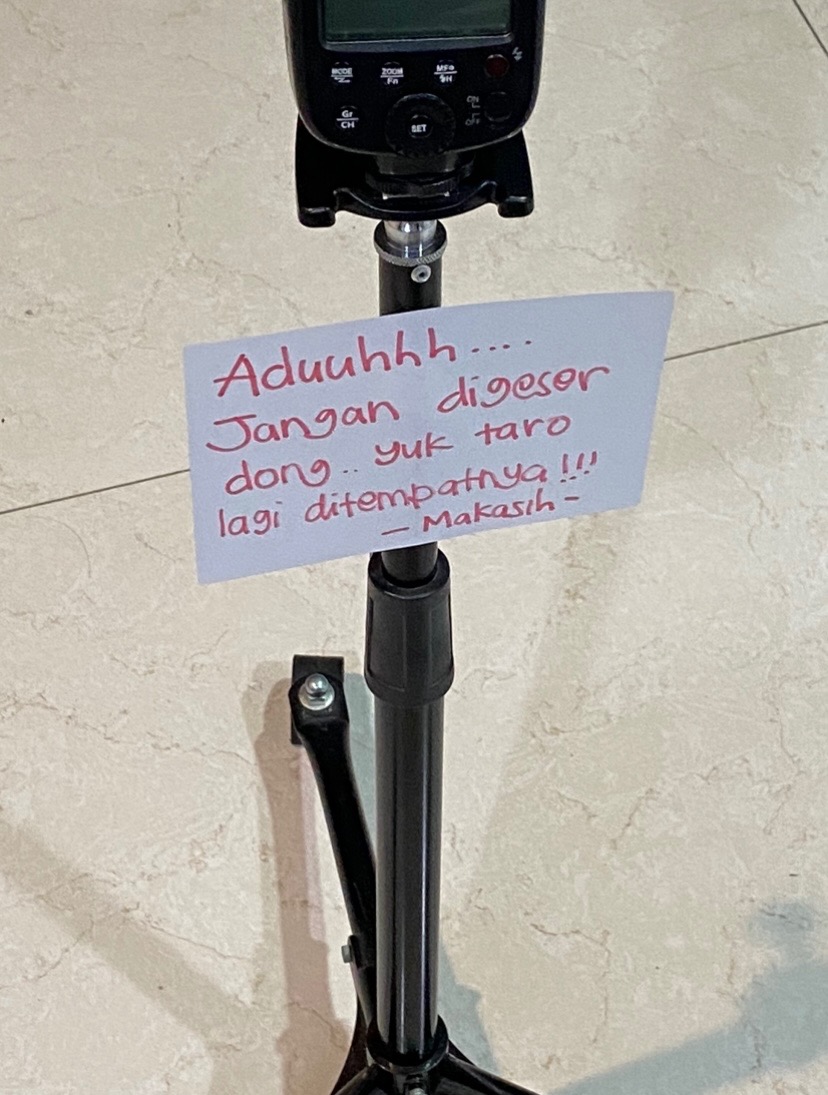 MODE
ZOOM
Fn
MFa
Gr
CH
SET
ON
Aduuhhh....
Jangan digeser
dong.. yuk taro
lagi ditempatnya!!!
- Makasih -